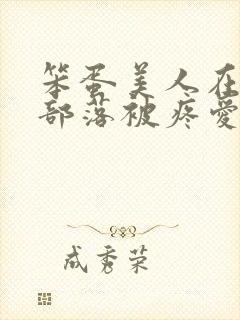 笨蛋美人在
部落被疼愛
成秀荣